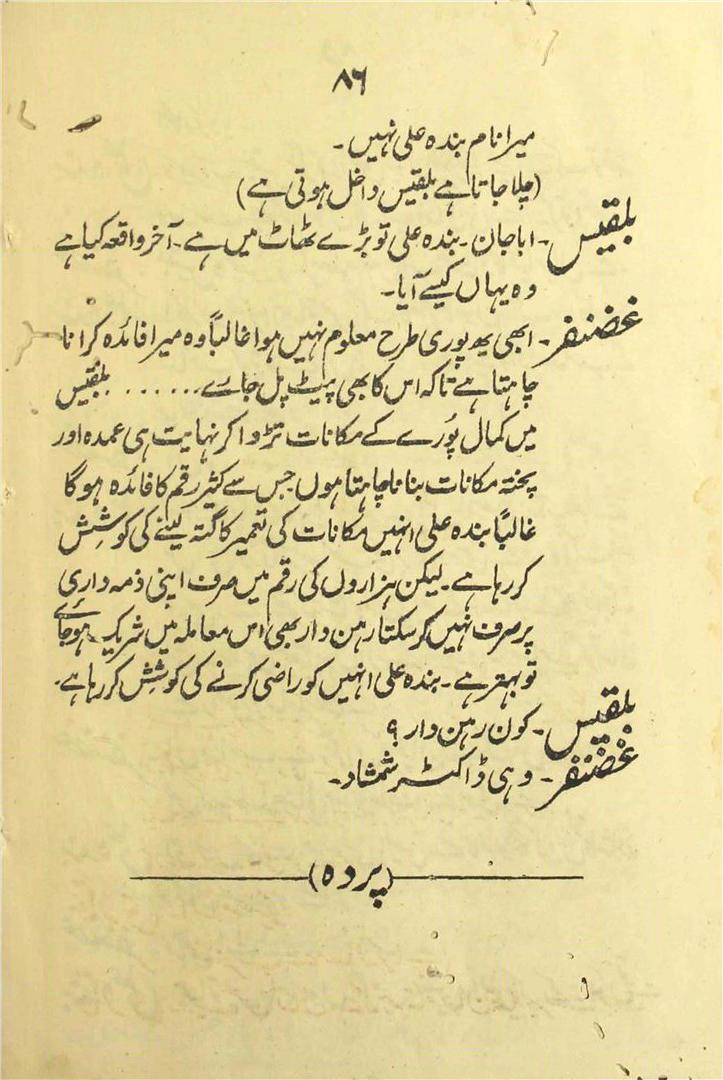 ۸۶
میرا نام بندہ علی نہیں۔
(چلا جاتا ہے بلقیس داخل ہوتی ہے)
بلقیس۔ ابا جان۔ بندہ علی تو بڑے ٹھاٹ میں ہے۔ آخر واقعہ کیا ہے
وہ یہاں کیسے آیا۔
غضنفر۔ ابھی یہ پوری طرح معلوم نہیں ہوا غالباً وہ میرا فائدہ کرانا
چاہتا ہے تاکہ اس کا بھی پیٹ پل جائے...... بلقیس
میں کمال پورے کے مکانات تڑوا کر نہایت ہی عمدہ اور
پختہ مکانات بنانا چاہتا ہوں جس سے کثیر رقم کا فائدہ ہوگا
غالباً بندہ علی انہیں مکانات کی تعمیر کا گتہ لینے کی کوشش
کر رہا ہے۔ لیکن ہزاروں کی رقم میں صرف اپنی ذمہ داری
پر صرف نہیں کر سکتا رہن دار بھی اس معاملہ میں شریک ہو جائے
تو بہتر ہے۔ بندہ علی انہیں کو راضی کرنے کی کوشش کر رہا ہے۔
بلقیس۔ کون رہن دار؟
غضنفر۔ وہی ڈاکٹر شمشاد۔
(پردہ)